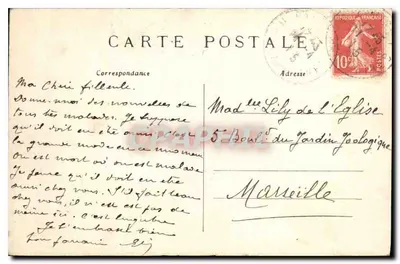 CARTE POSTALE
Correspondance
Adresse
REPUBLIQUE FRANCAISE
10
POSTES
Ma Chère filleule.
Donne-moi des nouvelles de
tous tes malades. Je suppose
qu'il doit en être ainsi c'est
la grande mode en ce moment
On est mort où on est malade
Je pense qu'il doit en être
ainsi chez vous. S'il fait beau
chez vous, il n'en est pas de
même ici. C'est lugubre
Je t'embrasse bien
Ton parrain
Mad lle Lily de l'Eglise
5 Boul d du Jardin Zoologique
Marseille